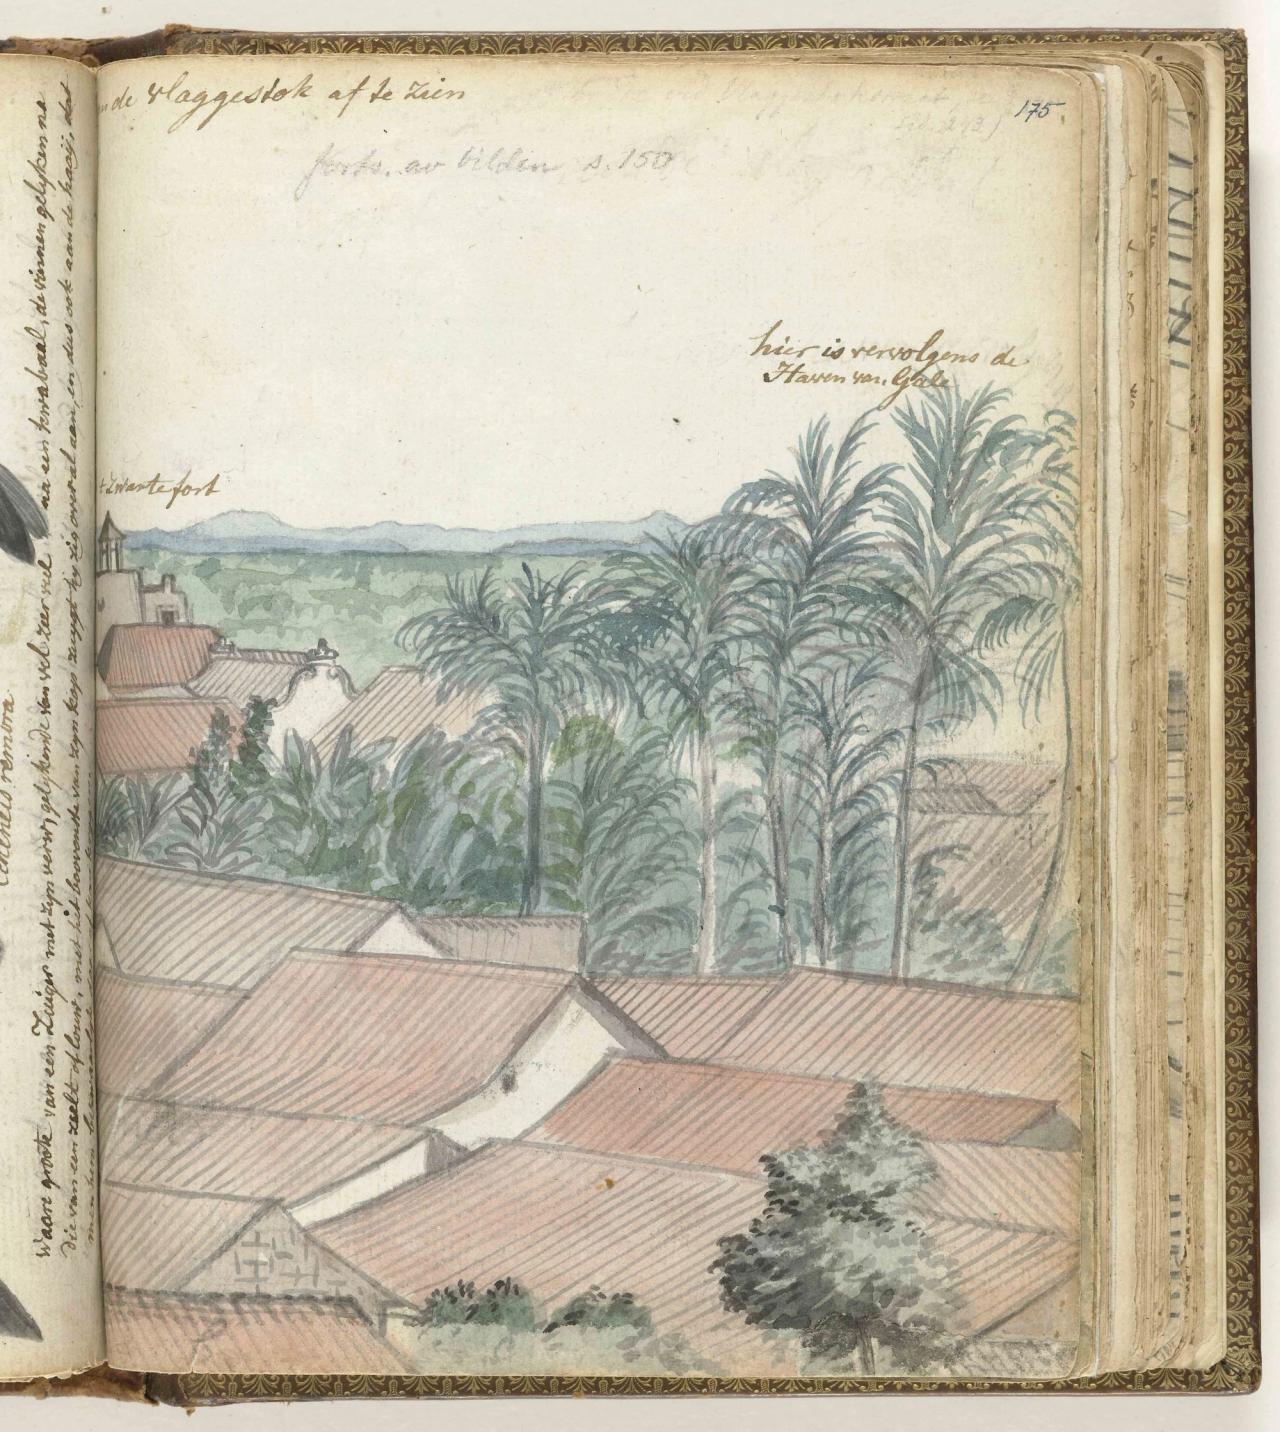 de vlaggestok af te zien
175
forts. av bilden s. 150
hier is vervolgens de
Haven van Gale
Zwarte fort
Echeneis remora
waare groote van een Zuiger met zyn verw, gelykende van vel zeer veel na een kwabaal, de vinnen gelyken na
die van een zeelt of louw, met het bovenste van zyn kop zuigt hy zig overal aan, en dus ook aan de haaij, dat
men hem